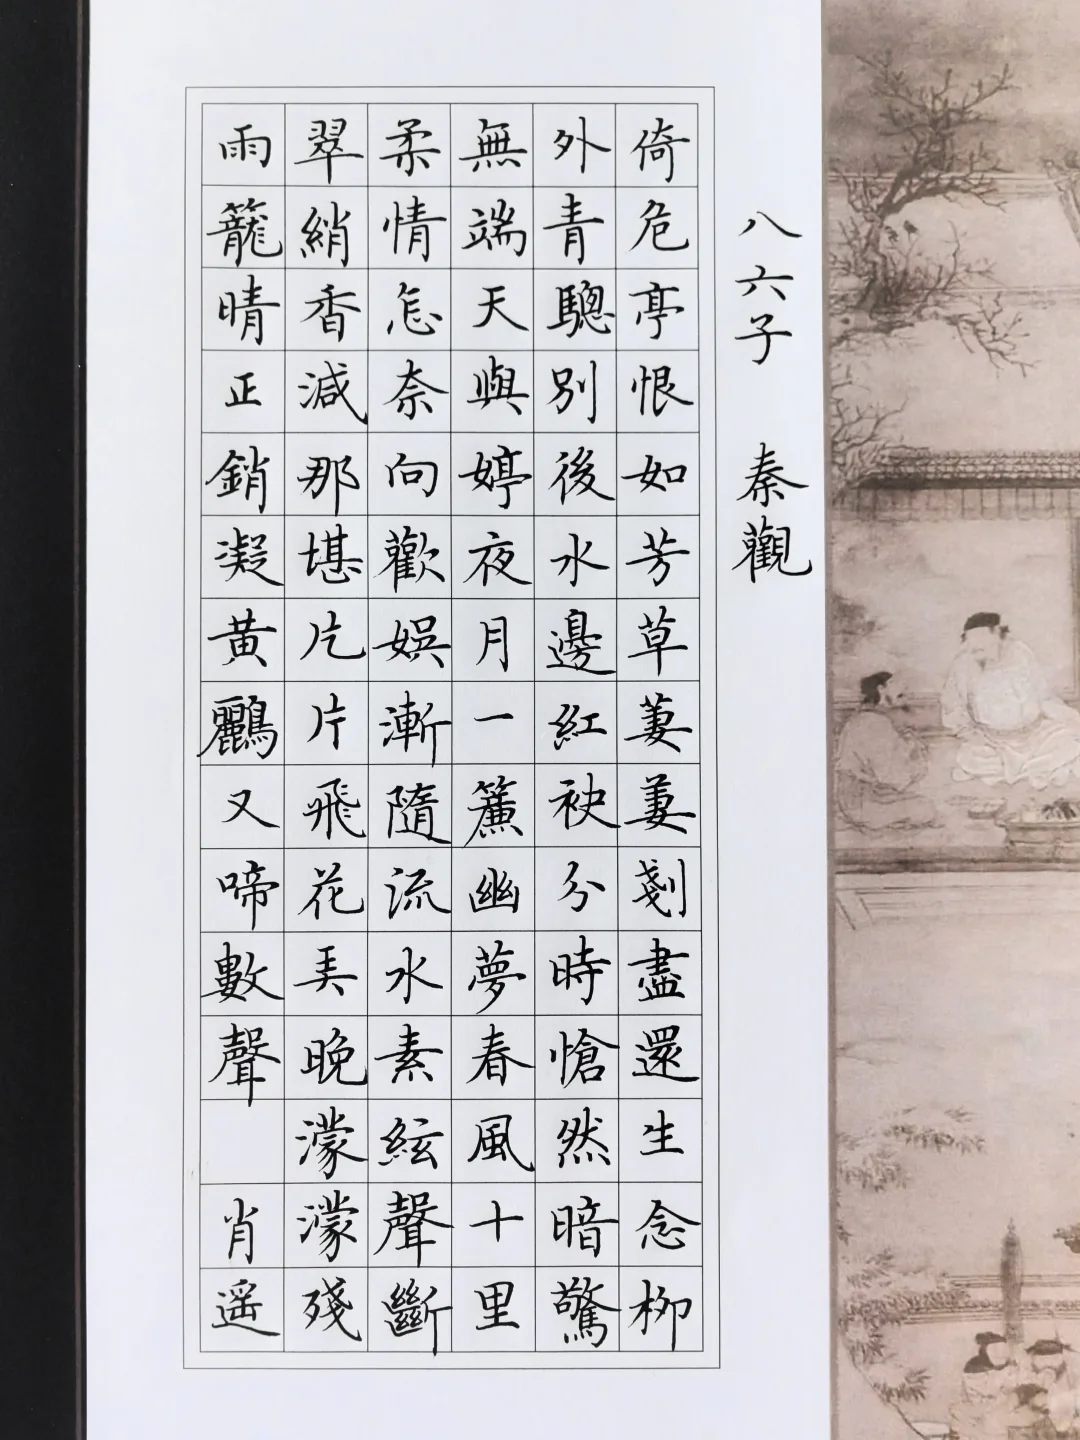 八六子 秦觀
倚危亭恨如芳草萋萋剗盡還生念柳
外青驄別後水邊紅袂分時愴然暗驚
無端天與娉婷夜月一簾幽夢春風十里
柔情怎奈向歡娛漸隨流水素絃聲斷
翠綃香減那堪片片飛花弄晚濛濛殘
雨籠晴正銷凝黃鸝又啼數聲
肖遥